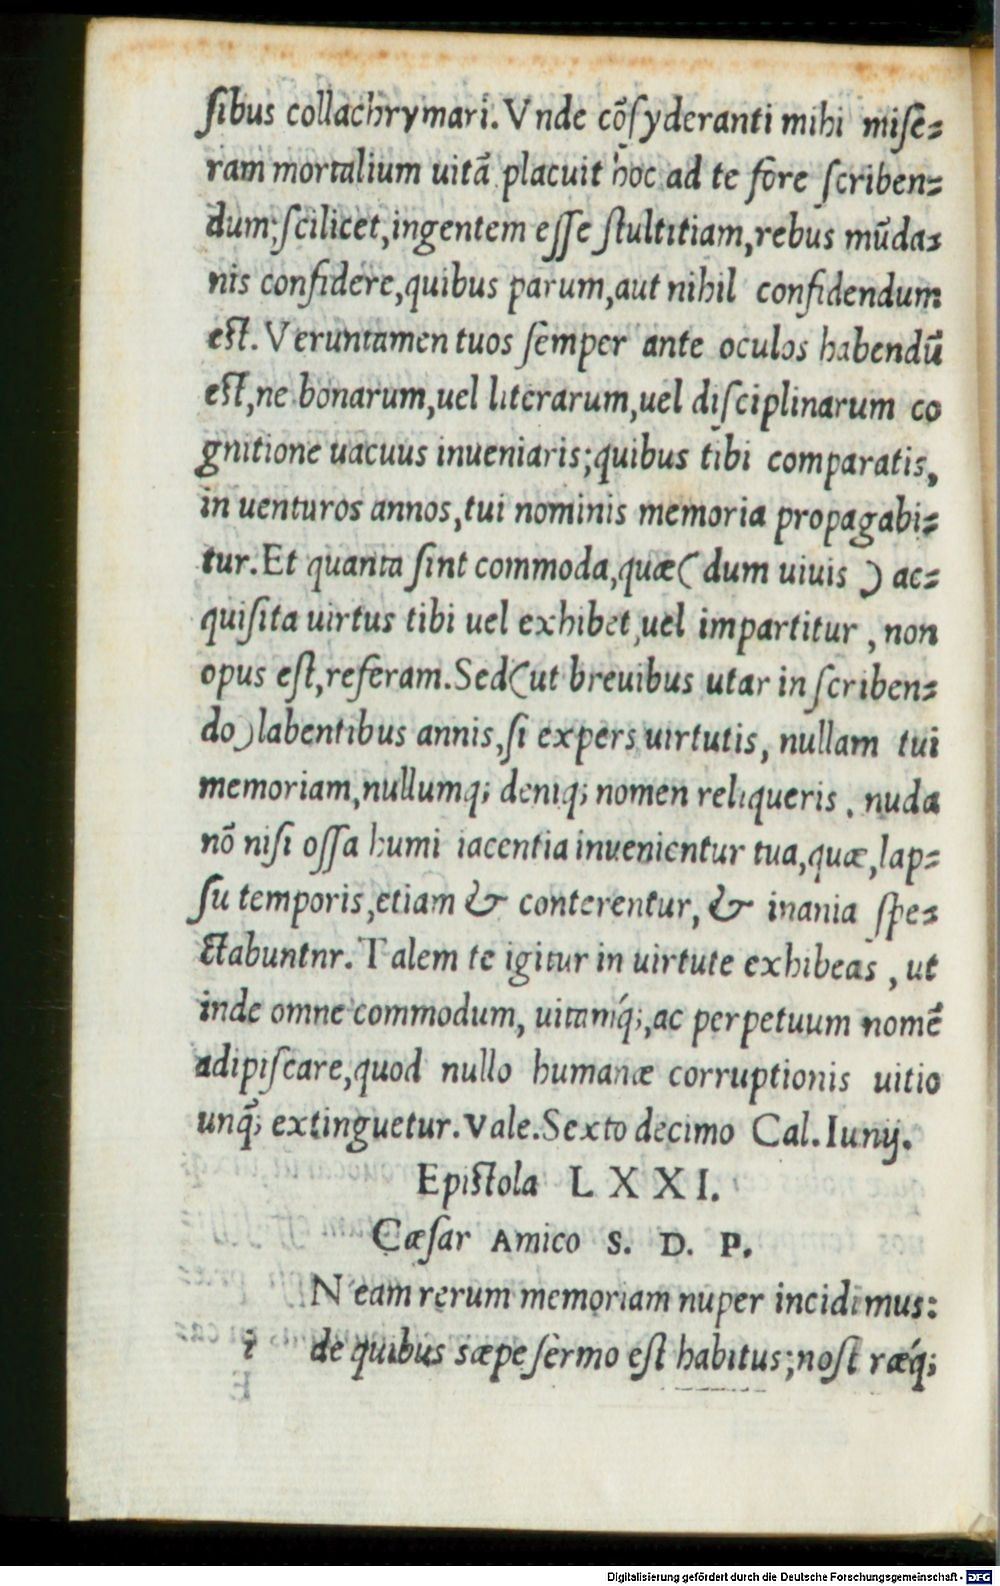 ſibus collachrymari. Vnde cõſyderanti mihi miſe⸗
ram mortalium uitã placuit hoc ad te fore ſcriben⸗
dum; ſcilicet, ingentem eſſe ſtultitiam, rebus mũda⸗
nis confidere, quibus parum, aut nihil confidendum
eſt. Veruntamen tuos ſemper ante oculos habendũ
eſt, ne bonarum, uel literarum, uel diſciplinarum co
gnitione uacuus inueniaris; quibus tibi comparatis,
in uenturos annos, tui nominis memoria propagabi⸗
tur. Et quanta ſint commoda, quæ (dum uiuis) ac⸗
quiſita uirtus tibi uel exhibet, uel impartitur, non
opus eſt, referam. Sed (ut breuibus utar in ſcriben⸗
do) labentibus annis, ſi expers uirtutis, nullam tui
memoriam, nullumq; deniq; nomen reliqueris, nuda
nõ niſi oſſa humi iacentia inuenientur tua, quæ, lap⸗
ſu temporis, etiam & conterentur, & inania ſpe⸗
ctabuntnr. Talem te igitur in uirtute exhibeas, ut
inde omne commodum, uitamq́;, ac perpetuum nomẽ
adipiſcare, quod nullo humanæ corruptionis uitio
unq̃; extinguetur. Vale. Sexto decimo Cal. Iunij.
Epiſtola LXXI.
Cæſar Amico S. D. P.
N eam rerum memoriam nuper incidimus:
de quibus sæpe ſermo eſt habitus; noſt ræq́;
Digitalisierung gefördert durch die Deutsche Forschungsgemeinschaft - DFG